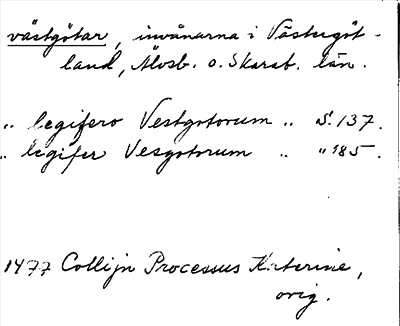 västgötar, invånarna i Västergöt-
land, Älvsb. o. Skarab. län.
„ legifero Vestgotorum „ S. 137.
„ legifer Vesgotorum „ „ 185.
1477 Collijn Processus Katerine,
orig.